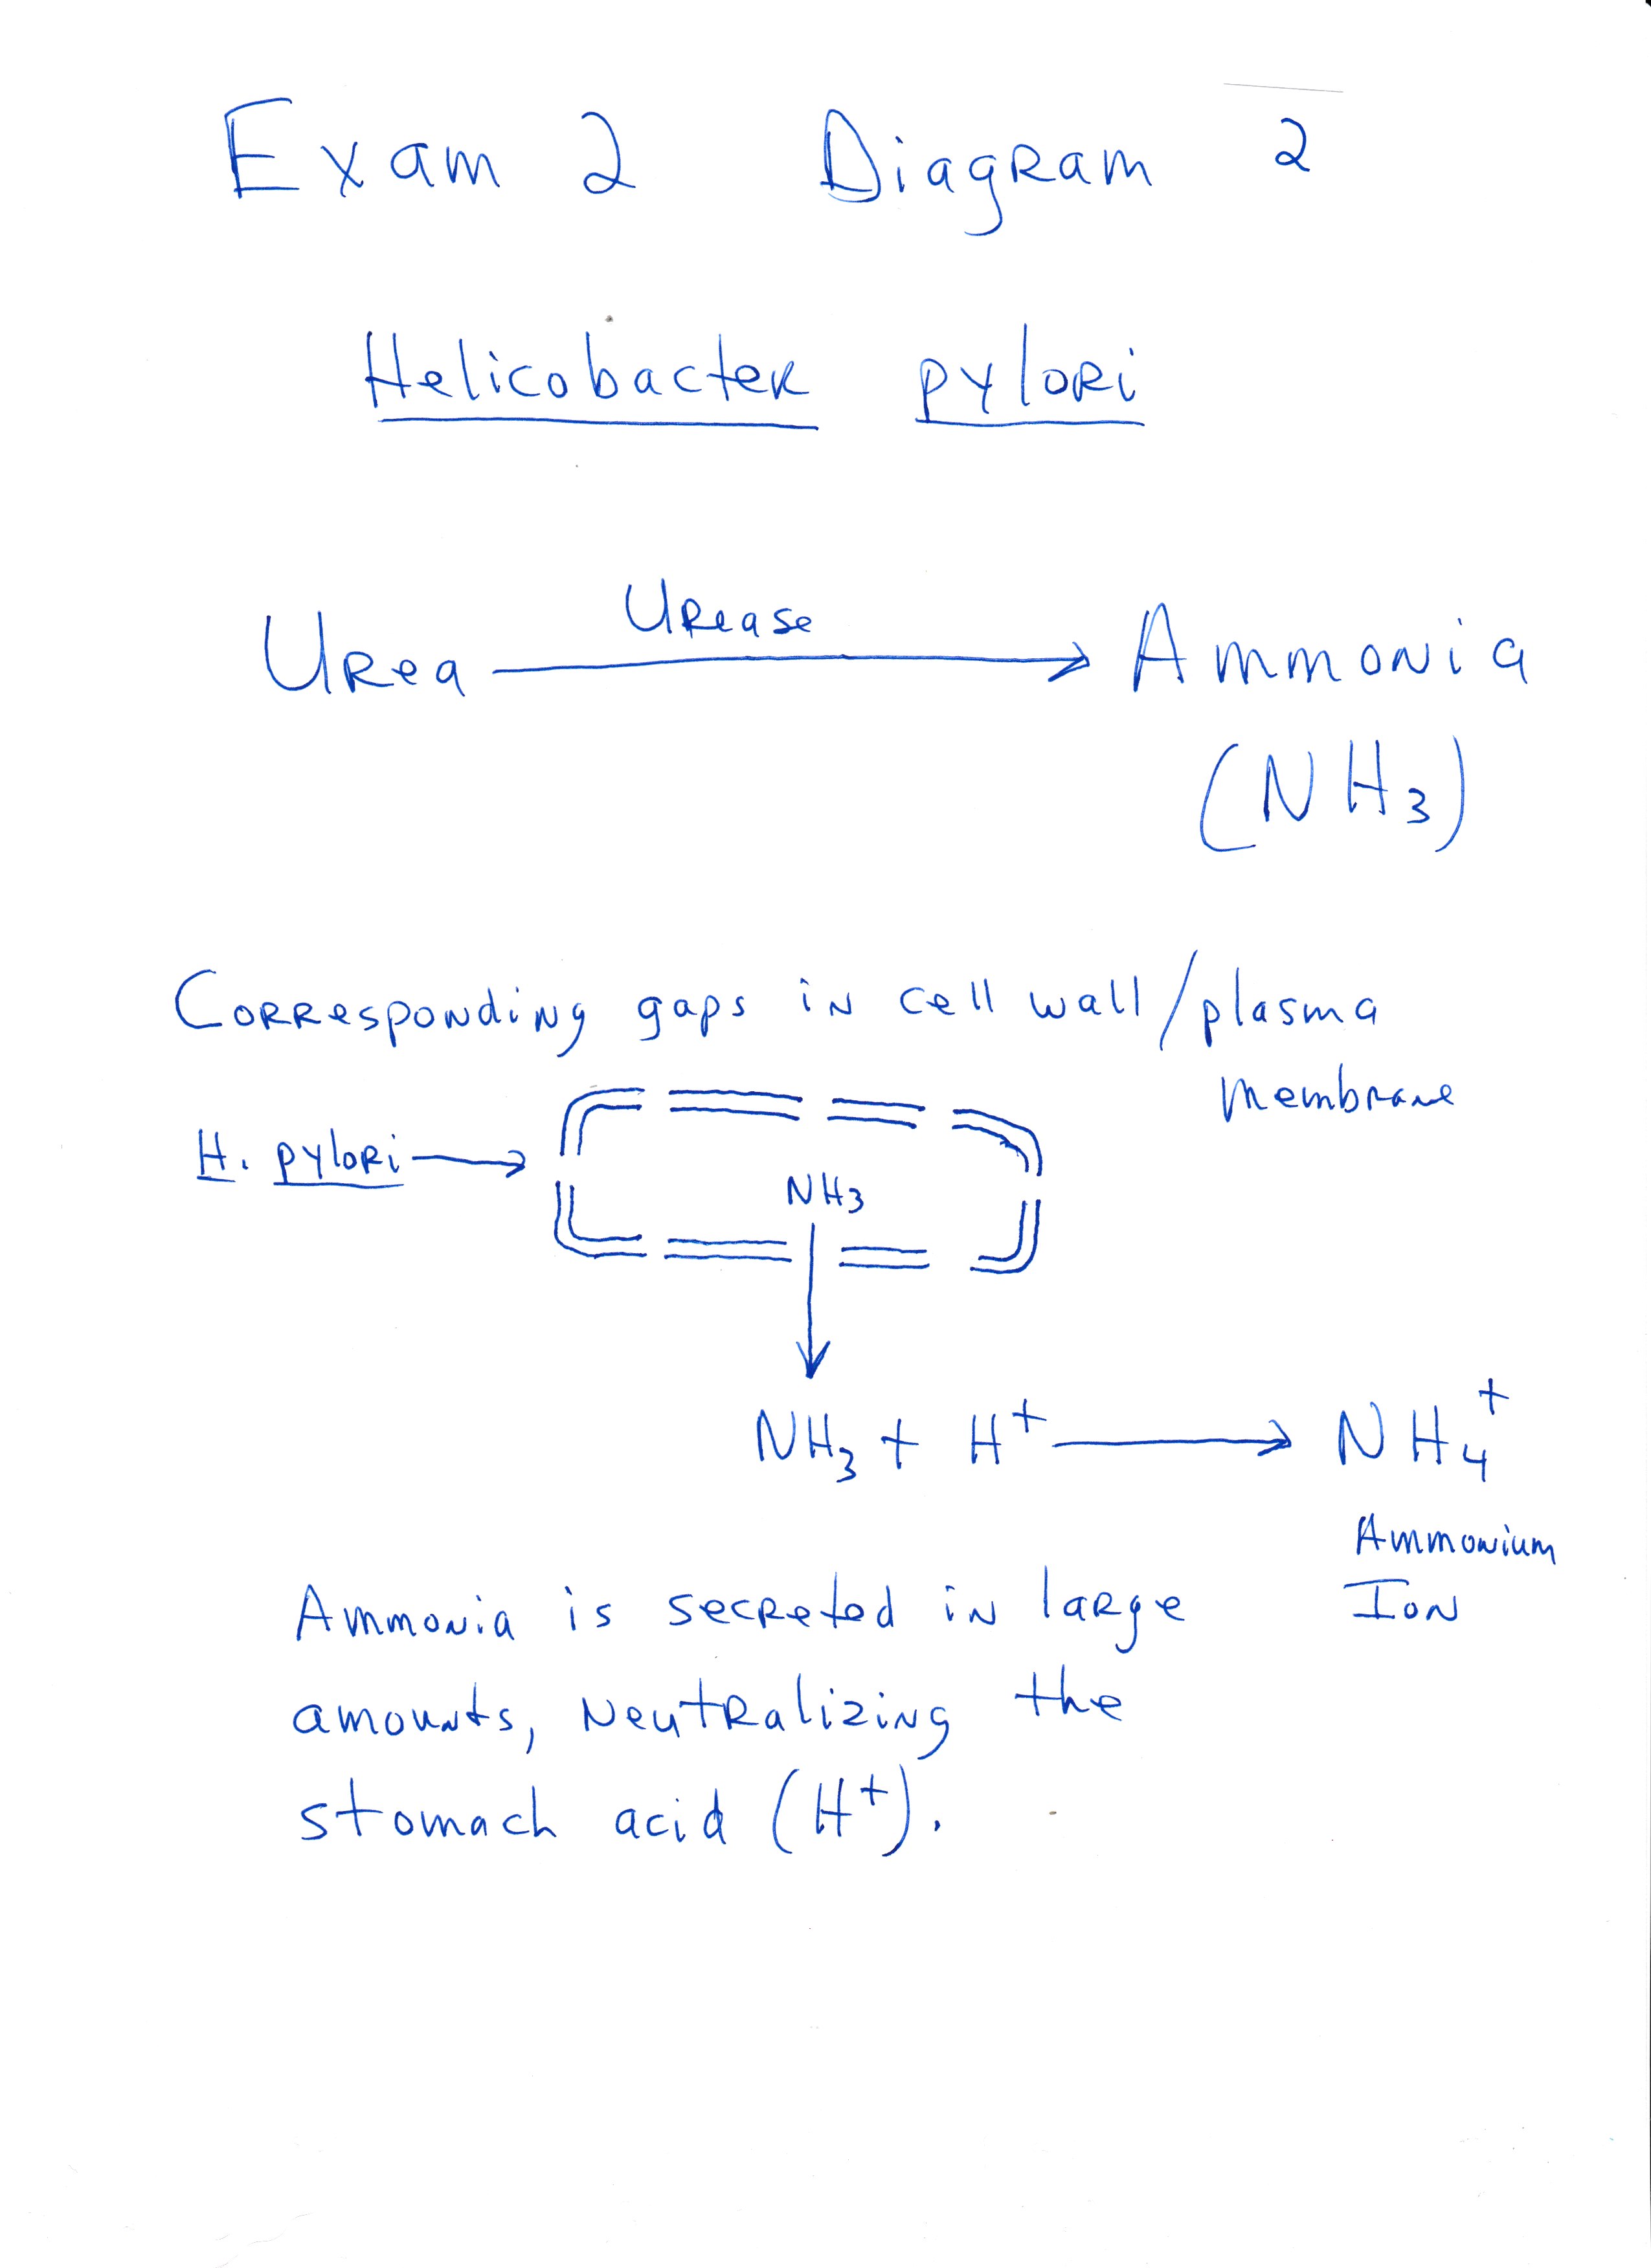 Exam 2 Diagram 2
Helicobacter pylori
Urease
Urea → Ammonia
(NH3)
Corresponding gaps in cell wall/plasma
membrane
H. pylori →
NH3
NH3 + H+ → NH4+
Ammonium
Ion
Ammonia is secreted in large
amounts, neutralizing the
stomach acid (H+).